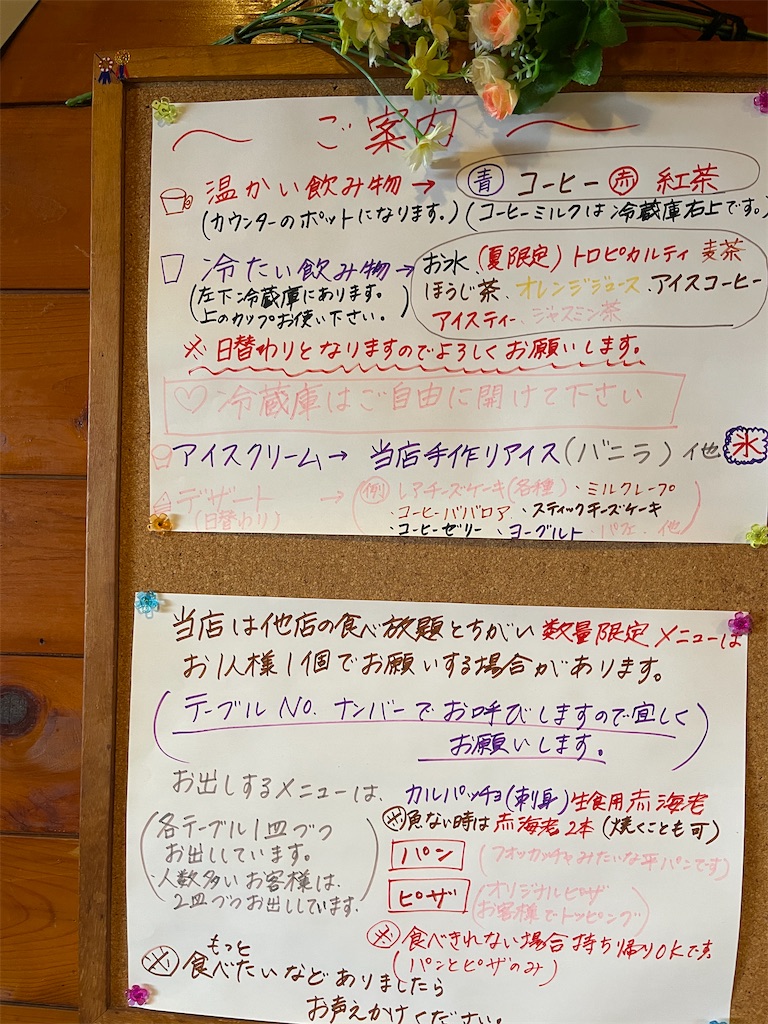 ご案内
温かい飲み物→ 青 コーヒー 赤 紅茶
(カウンターのポットになります。)(コーヒーミルクは冷蔵庫右上です。)
冷たい飲み物→お水、(夏限定)トロピカルティ 麦茶
(左下冷蔵庫にあります。 ほうじ茶、オレンジジュース、アイスコーヒー
上のカップお使い下さい。) アイスティー、ジャスミン茶
※日替わりとなりますのでよろしくお願いします。
♡冷蔵庫はご自由に開けて下さい
アイスクリーム→ 当店手作りアイス(バニラ)他 氷
デザート → 例 レアチーズケーキ(各種)・ミルクレープ
(日替わり) ・コーヒーババロア・スティックチーズケーキ
・コーヒーゼリー・ヨーグルト・パフェ 他
当店は他店の食べ放題とちがい数量限定メニューは
お1人様1個でお願いする場合があります。
(テーブルNo.ナンバーでお呼びしますので宜しく
お願いします。)
お出しするメニューは、カルパッチョ(刺身)生食用赤海老
(各テーブル1皿づつ
お出ししています。
・人数多いお客様は、
2皿づつお出ししています。)
※魚ない時は赤海老2本(焼くことも可)
パン (フォッカッチャみたいな平パンです)
ピザ (オリジナルピザ
お客様でトッピング)
※食べきれない場合持ち帰りOKです。
(パンとピザのみ)
※もっと食べたいなどありましたら
お声えかけください。